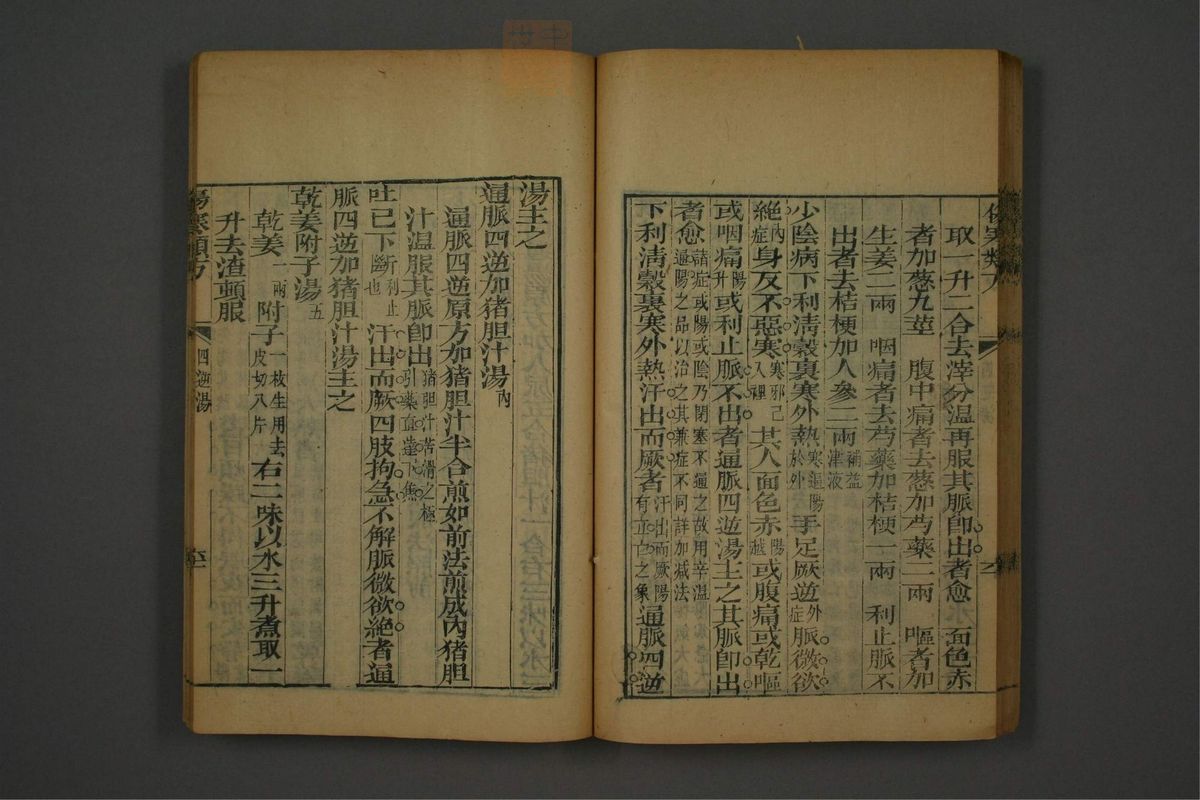 取一升二合去滓分温再服其脈卽出者愈　面色赤
者加葱九莖　腹中痛者去葱加芍藥二兩　嘔者加
生姜二兩　咽痛者去芍藥加桔梗一兩　利止脈不
出者去桔梗加人參二兩補益津液
少陰病下利淸穀裏寒外熱寒逼陽於外手足厥逆外症脈微欲
絶內症身反不惡寒寒邪已入裡其人面色赤陽越或腹痛或乾嘔
或咽痛陽升或利止脈不出者通脈四逆湯主之其脈卽出
者愈諸症或陽或陰乃閉塞不通之故用辛温通陽之品以治之其兼症不同詳加減法
下利淸穀裏寒外熱汗出而厥者汗出而厥陽有立亡之象通脈四逆
湯主之
通脈四逆加猪胆汁湯
通脈四逆原方加猪胆汁半合煎如前法煎成內猪胆
汁温服其脈卽出猪胆汁苦滑之極引藥直達下焦
吐已下斷利止也汗出而厥四肢拘急不解脈微欲絶者通
脈四逆加猪胆汁湯主之
乾姜附子湯五
乾姜一兩附子一枚生用去皮切八片右二味以水三升煮取一
升去渣頓服
傷寒類方
四逆湯